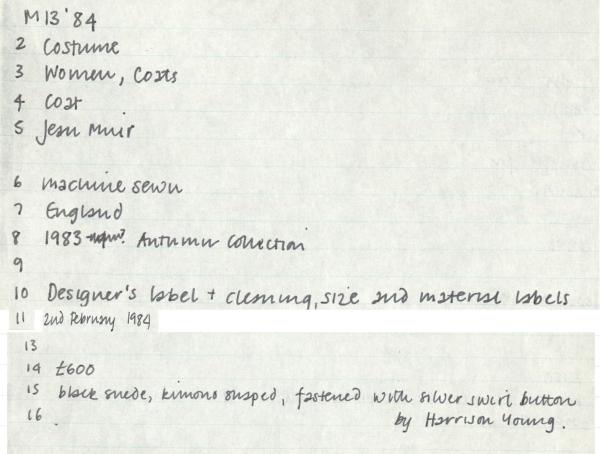 M13 '84
2 Costume
3 Women, Coats
4 Coat
5 Jean Muir
6 machine sewn
7 England
8 1983 Autumn Collection
9
10 Designer's label + cleaning, size and material labels
11 2nd February 1984
13
14 £600
15 black suede, kimono shaped, fastened with silver swirl button
by Harrison Young.
16 .